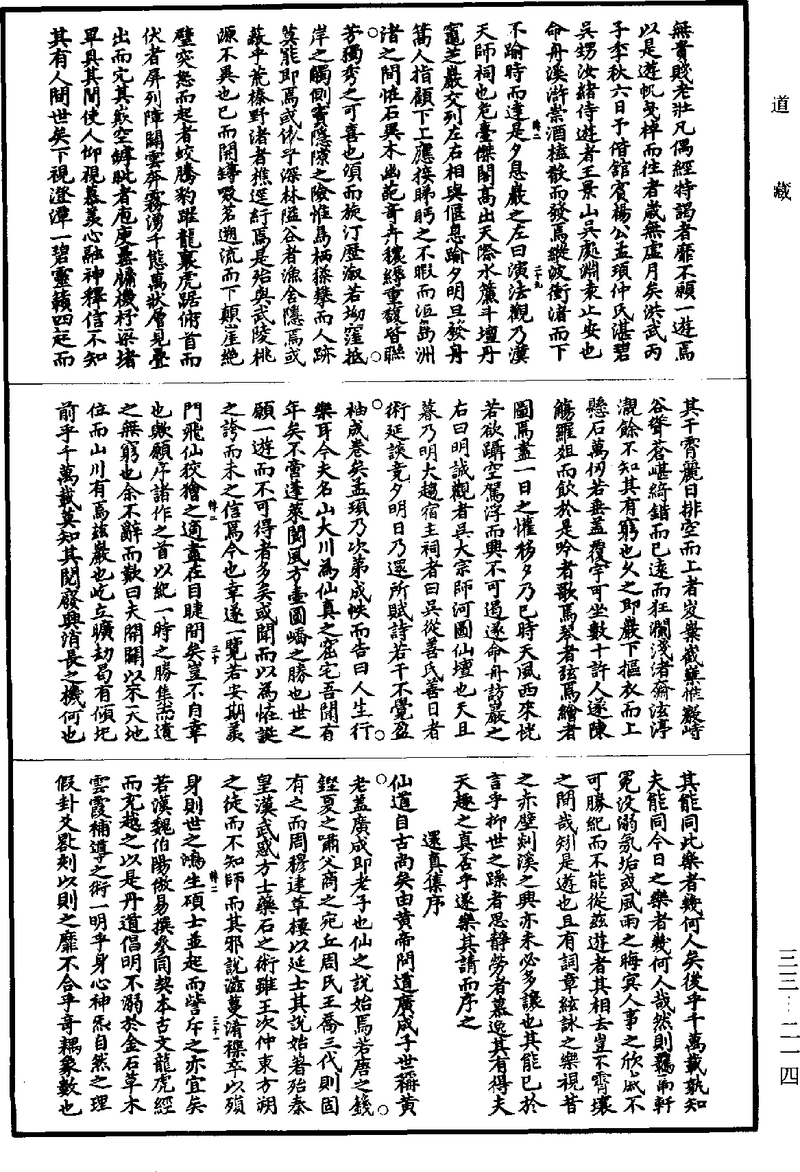 道藏
無貴賤老壯凡偶經特謁者靡不願一遊焉
以是遊帆曳棹而往者歲無虛月矣洪武丙
子季秋六日予偕舘賓楊公孟頊仲氏湛碧
吳甥汝緒侍遊者王景山吳庭淵束止安也
命舟溪滸崇酒榼骰而發焉縱波衝渚而下
不踰時而達是夕息巖之左曰演法觀乃漢
天師祠也危臺傑閣高出天際氷簾斗壇丹
竈芝巖交列左右相與偃息踰夕明旦發舟
篙人指顧下上應接睇眄之不暇而沍島洲
渚之間恠石異木幽葩奇卉穠縟重馥昏聯
芳獨秀之可喜也頃而旋汀歷溆若坳窪抵
岸之觸側竇隱隙之險惟鳥栖猱攀而人跡
莫能即焉或依乎深林隘谷者漁舍隱焉或
蔽乎荒榛野渚者樵逕紆焉是殆與武陵桃
源不異也已而開罇啜茗遡流而下顛崖絕
壁突怒而起者蛟騰豹躍龍裹虎踞俯首而
伏者屏列障關雲奔霧湧千態萬狀層見疊
出而穴其嵌空罅眦者庖庾囷牗機杼梁堵
畢具其間使人仰視慕羡心融神釋信不知
其有人間世矣下視澄潭一碧靈籟四起而
其干霄麗日排空而上者岌嶪嶻㠔惟巖峙
谷聳蒼嵁綺錯而已遠而狂瀾淺渚瀹泫渟
瀙餘不知其有窮也乆之即巖下摳衣而上
懸石萬仞若垂蓋覆宇可坐數十許人遂陳
觴羅俎而飲於是吟者歌焉琴者弦焉繪者
圖焉盡一日之懽移夕乃已時天風西來恍
若欲躡空駕浮而興不可遏遂命舟訪巖之
右曰明誠觀者吳大宗師河圖仙壇也天且
暮乃明大趨宿主祠者曰吳從善氏善日者
術延談竟夕明日乃還所賦詩若干不覺盈
袖成卷矣孟頊乃次第成帙而告曰人生行
樂耳今夫名山大川為仙真之窟宅吾聞有
年矣不啻蓬萊閬風方壺圓嶠之勝也世之
願一遊而不可得者多矣或聞而以為恠誕
之誇而未之信焉今也幸遂一覽若安期羨
門飛仙狡獪之適盡在目睫間矣豈不自幸
也歟願序諸作之首以紀一時之勝集尚遺
之無窮也余不辭而歎曰夫開闢以來天地
位而山川有焉茲巖也屹立曠劫曷有傾圮
前乎千萬載莫知其閱廢興消長之機何也
其能同此樂者幾何人矣後乎千萬載孰知
夫能同今日之樂者幾何人哉然則羈而軒
冕没溺氛垢或風雨之晦冥人事之欣戚不
可勝紀而不能從茲遊者其相去豈不霄壤
之間哉矧是遊也且有詞章絃詠之樂視昔
之赤壁剡溪之興亦未必多讓也其能已於
言乎抑世之躁者思靜勞者慕逸其有得夫
天趣之真否乎遂樂其請而序之
還真集序
仙道自古尚矣由黄帝問道廣成子世稱黄
老蓋廣成即老子也仙之說始焉若唐之籛
鏗夏之嘯父商之宛丘周氏王喬三代則固
有之而周穆建草樓以延士其說始著殆秦
皇漢武惑方士藥石之術雖王次仲東方朔
之徒而不知師而其邪說滋蔓淆襍卒以殞
身則世之鴻生碩士並起而訾斥之亦宜矣
若漢魏伯陽倣易撰參同契本古文龍虎經
而充越之以是丹道倡明不溺於金石草木
雲霞補導之術一明乎身心神炁自然之理
假卦爻晷刻以則之靡不合乎奇耦象數也
三三—二一四